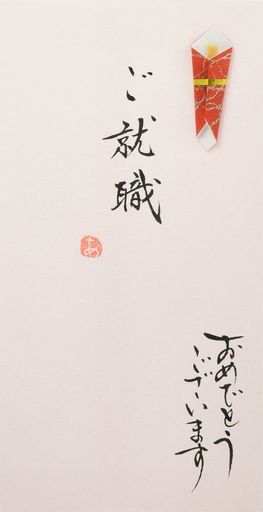 ご就職
おめでとう
ございます